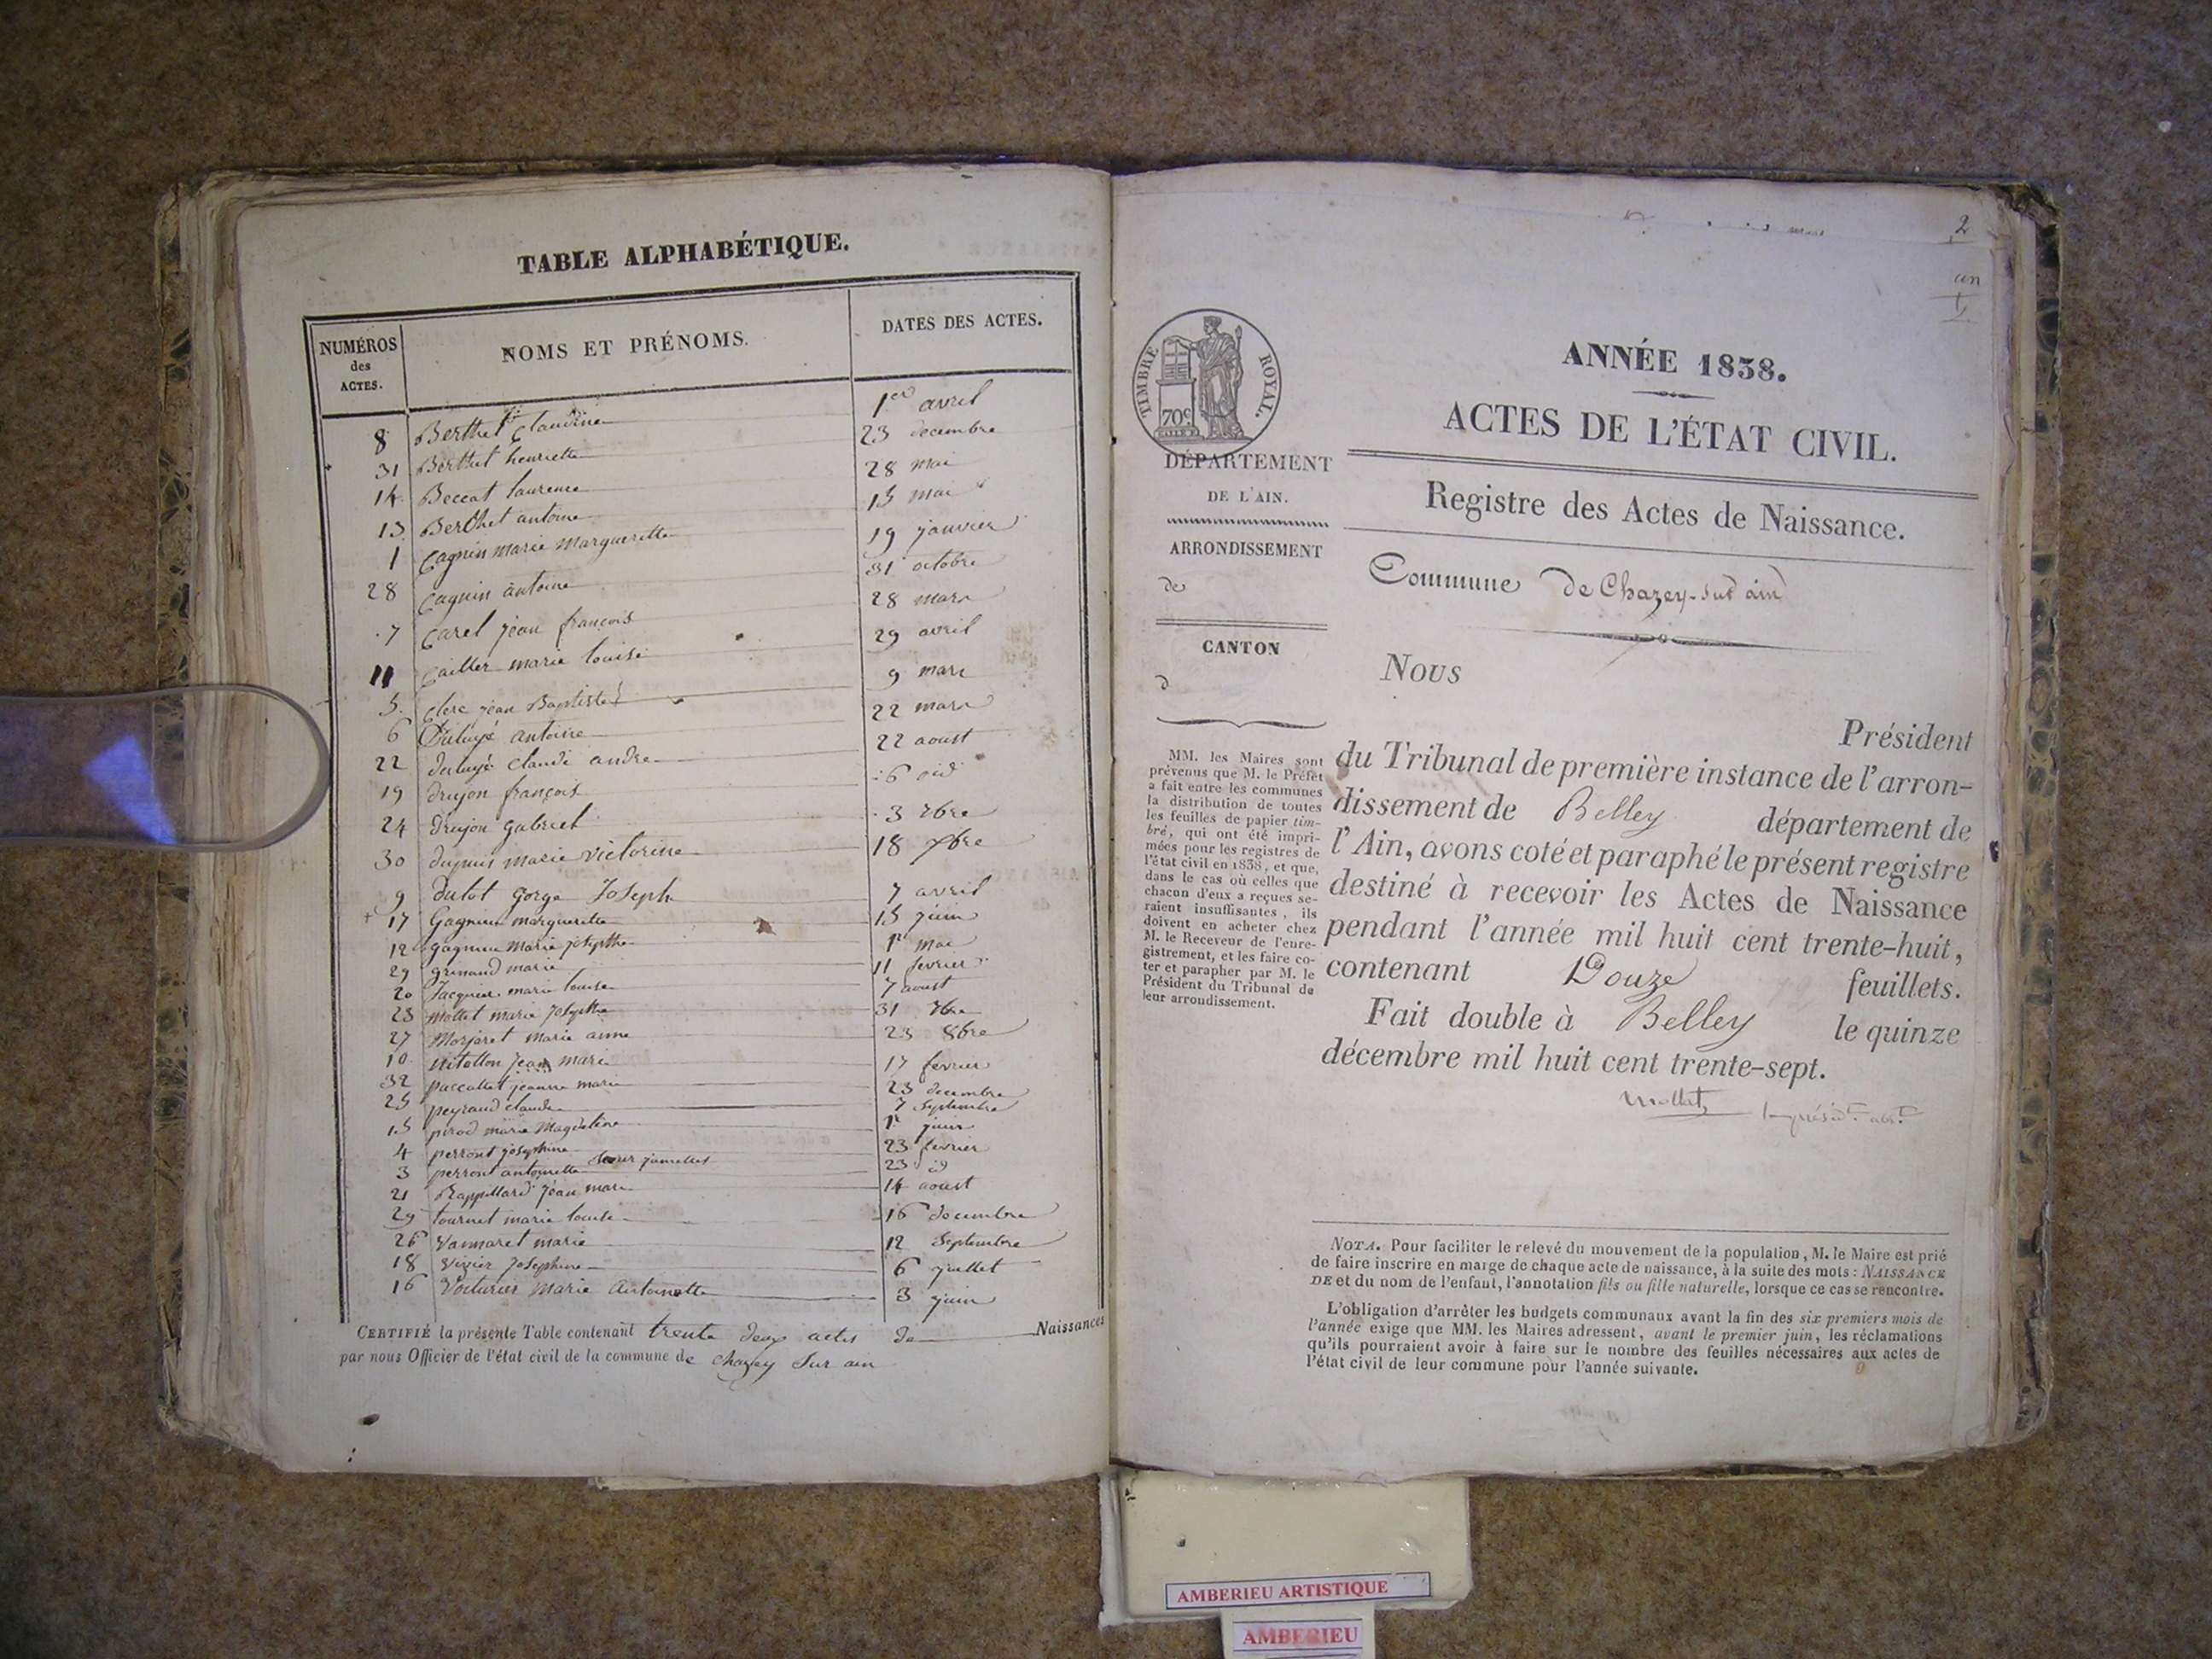 TABLE ALPHABÉTIQUE.
NUMÉROS des ACTES. NOMS ET PRÉNOMS. DATES DES ACTES.
8 Berthet Claudine 1er avril
31 Berthet henriette 23 decembre
14 Beccat laurence 28 mai
13 Berthet antoine 15 mai
1 Cagnin marie Marguerette 19 janvier
28 Cagnin antoine 31 octobre
7 Carel jean françois 28 mars
11 Cailler marie louise 29 avril
5 Clerc jean Baptiste 9 mars
6 antoine 22 mars
22 claude andre 22 aoust
19 drujon françois 6 id
24 drujon gabriel 3 7bre
30 dupuis marie victorine 18
9 dulot gorge Joseph 7 avril
17 Gagneu marguerette 15 juin
12 gagneu Marie josepthe 1er mai
29 grinand marie 11 fevrier
20 Jacquier marie louise 7 aoust
23 mollet marie josepthe 31
27 Morjaret marie anne 23 8bre
10 jean marie 17 fevrier
32 paccallet jeanne marie 23 decembre
25 peyraud claude 7 Septembre
15 pirod marie Magdeleine 1er juin
4 perront josephine 23 fevrier
3 perront antoinette Soeur jumelles 23 id
21 Rappillard jean marie 14 aoust
29 tournet marie louise 16 decembre
26 Vanmaret marie 12 Septembre
18 Vizier josephine 6 juillet
16 Voiturier Marie Antoinette 3 juin
CERTIFIÉ la présente Table contenant trente deux actes de Naissances
par nous Officier de l'état civil de la commune de Chazey Sur ain
2
un
TIMBRE ROYAL.
70c
ANNÉE 1838.
ACTES DE L'ÉTAT CIVIL.
Registre des Actes de Naissance.
DÉPARTEMENT
DE L'AIN.
ARRONDISSEMENT
de
CANTON
d
MM. les Maires sont
prévenus que M. le Préfet
a fait entre les communes
la distribution de toutes
les feuilles de papier tim-
bré, qui ont été impri-
mées pour les registres de
l'état civil en 1838, et que,
dans le cas où celles que
chacun d'eux a reçues se-
raient insuffisantes, ils
doivent en acheter chez
M. le Receveur de l'enre-
gistrement, et les faire co-
ter et parapher par M. le
Président du Tribunal de
leur arrondissement.
Commune de Chazey-sur ain
Nous
Président
du Tribunal de première instance de l'arron-
dissement de Belley département de
l'Ain, avons coté et paraphé le présent registre
destiné à recevoir les Actes de Naissance
pendant l'année mil huit cent trente-huit,
contenant Douze feuillets.
Fait double à Belley le quinze
décembre mil huit cent trente-sept.
NOTA. Pour faciliter le relevé du mouvement de la population, M. le Maire est prié
de faire inscrire en marge de chaque acte de naissance, à la suite des mots : NAISSANCE
DE et du nom de l'enfant, l'annotation fils ou fille naturelle, lorsque ce cas se rencontre.
L'obligation d'arrêter les budgets communaux avant la fin des six premiers mois de
l'année exige que MM. les Maires adressent, avant le premier juin, les réclamations
qu'ils pourraient avoir à faire sur le nombre des feuilles nécessaires aux actes de
l'état civil de leur commune pour l'année suivante.
AMBERIEU ARTISTIQUE
AMBERIEU